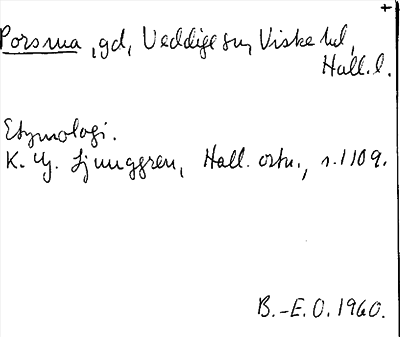 +
Porsma, gd, Veddige sn, Viske hd,
Hall. l.
Etymologi.
K. G. Ljunggren, Hall. ortn., s. 109.
B.-E. O. 1960.